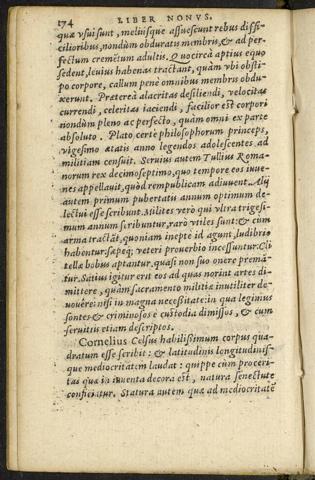 174 LIBER NONVS.
quæ vsui sunt, meliusque assuescunt rebus diffi-
cilioribus, nondum obduratis membris, & ad per-
fectum cremẽtum adultis. Quocircà aptius equo
sedent, leuius habenas tractant, quàm vbi obsti-
po corpore, callum penè omnibus membris obdu-
xerunt. Prætereà alacritas desiliendi, velocitas
currendi, celeritas iaciendi, facilior est corpori
nondùm pleno ac perfecto, quàm omni ex parte
absoluto. Plato certè philosophorum princeps,
vigesimo ætatis anno legendos adolescentes ad
militiam censuit. Seruius autem Tullius Roma-
norum rex decimoseptimo, quo tempore eos iuue-
nes appellauit, quòd rempublicam adiuuent. Alij
autem primum pubertatis annum optimum de-
lectui esse scribunt. Milites verò qui vltra trigesi-
mum annum scribuntur, rarò vtiles sunt: & cum
arma tractãt, quoniam ineptè id agunt, ludibrio
habentur: sæpeq; veteri prouerbio incessuntur. Cli
tellæ bobus aptantur, quasi non suo onere premã-
tur. Satius igitur erit eos ad quas norint artes di-
mittere, quàm sacramento militiæ inutiliter de-
uouére: nisi in magna necessitate: in qua legimus
sontes & criminosos è custodia dimissos, & cum
seruitijs etiam descriptos.
Cornelius Celsus habilissimum corpus qua-
dratum esse scribit: & latitudinis longitudinis-
que mediocritatem laudat: quippe cùm proceri-
tas quæ in iuuenta decora est, natura senectute
conficiatur. Statura autem quæ ad mediocritatẽ